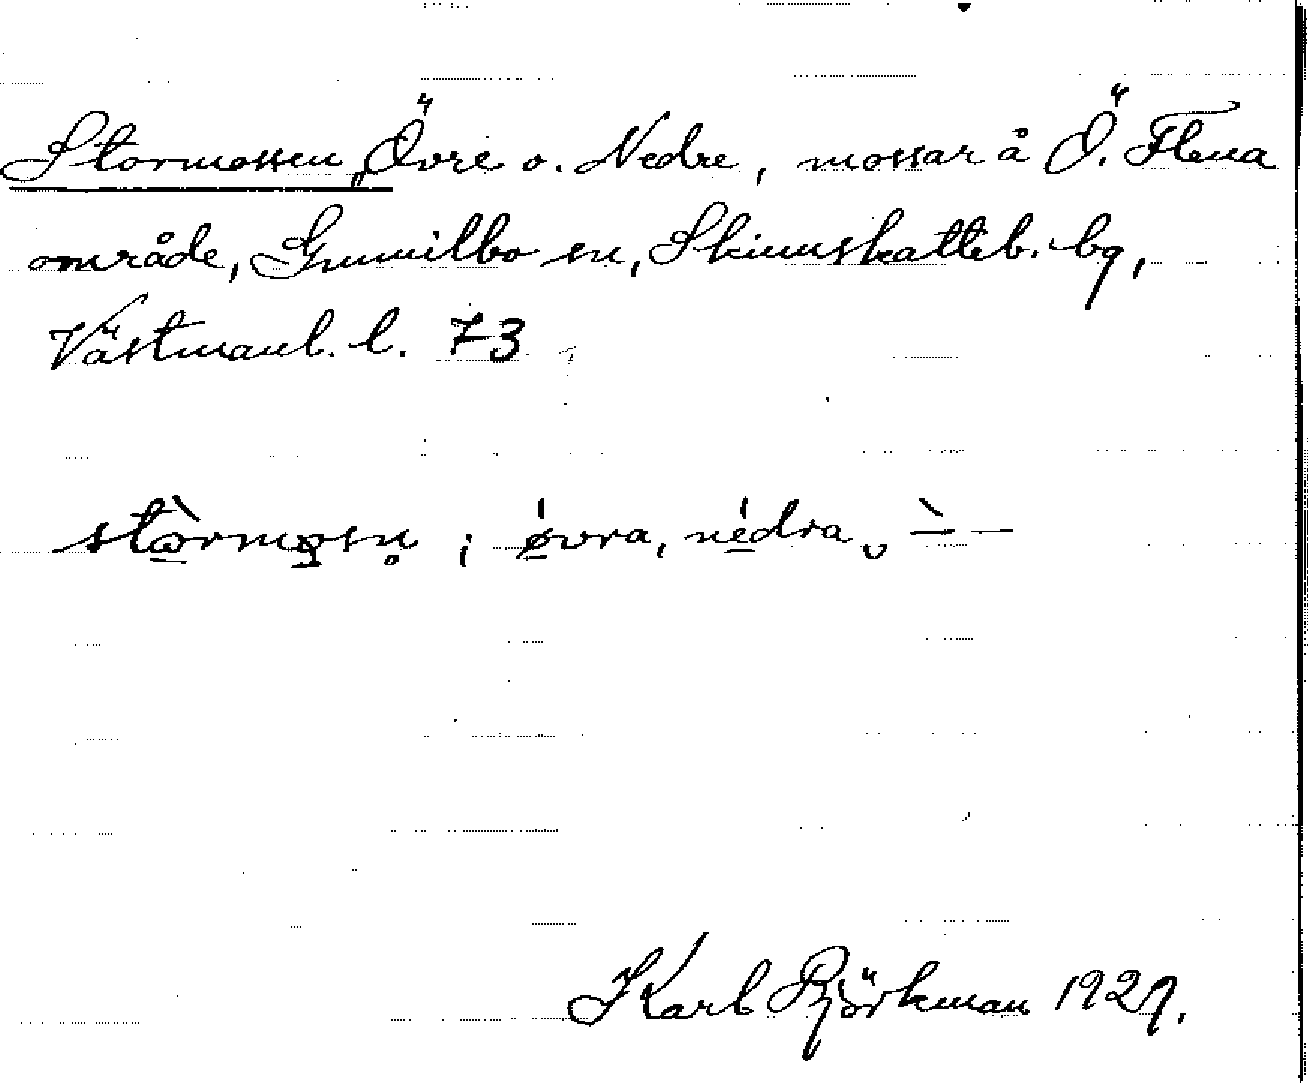 Stormossen, Övre o. Nedre, mossar å Ö. Flena
område, Gunnilbo sn, Skinnskatteb. bg,
Västmanl. l. 73
stòrmo̱sn̥ ; ǿvra, nédra ‿ ̀— —
Karl Björkman 1929.